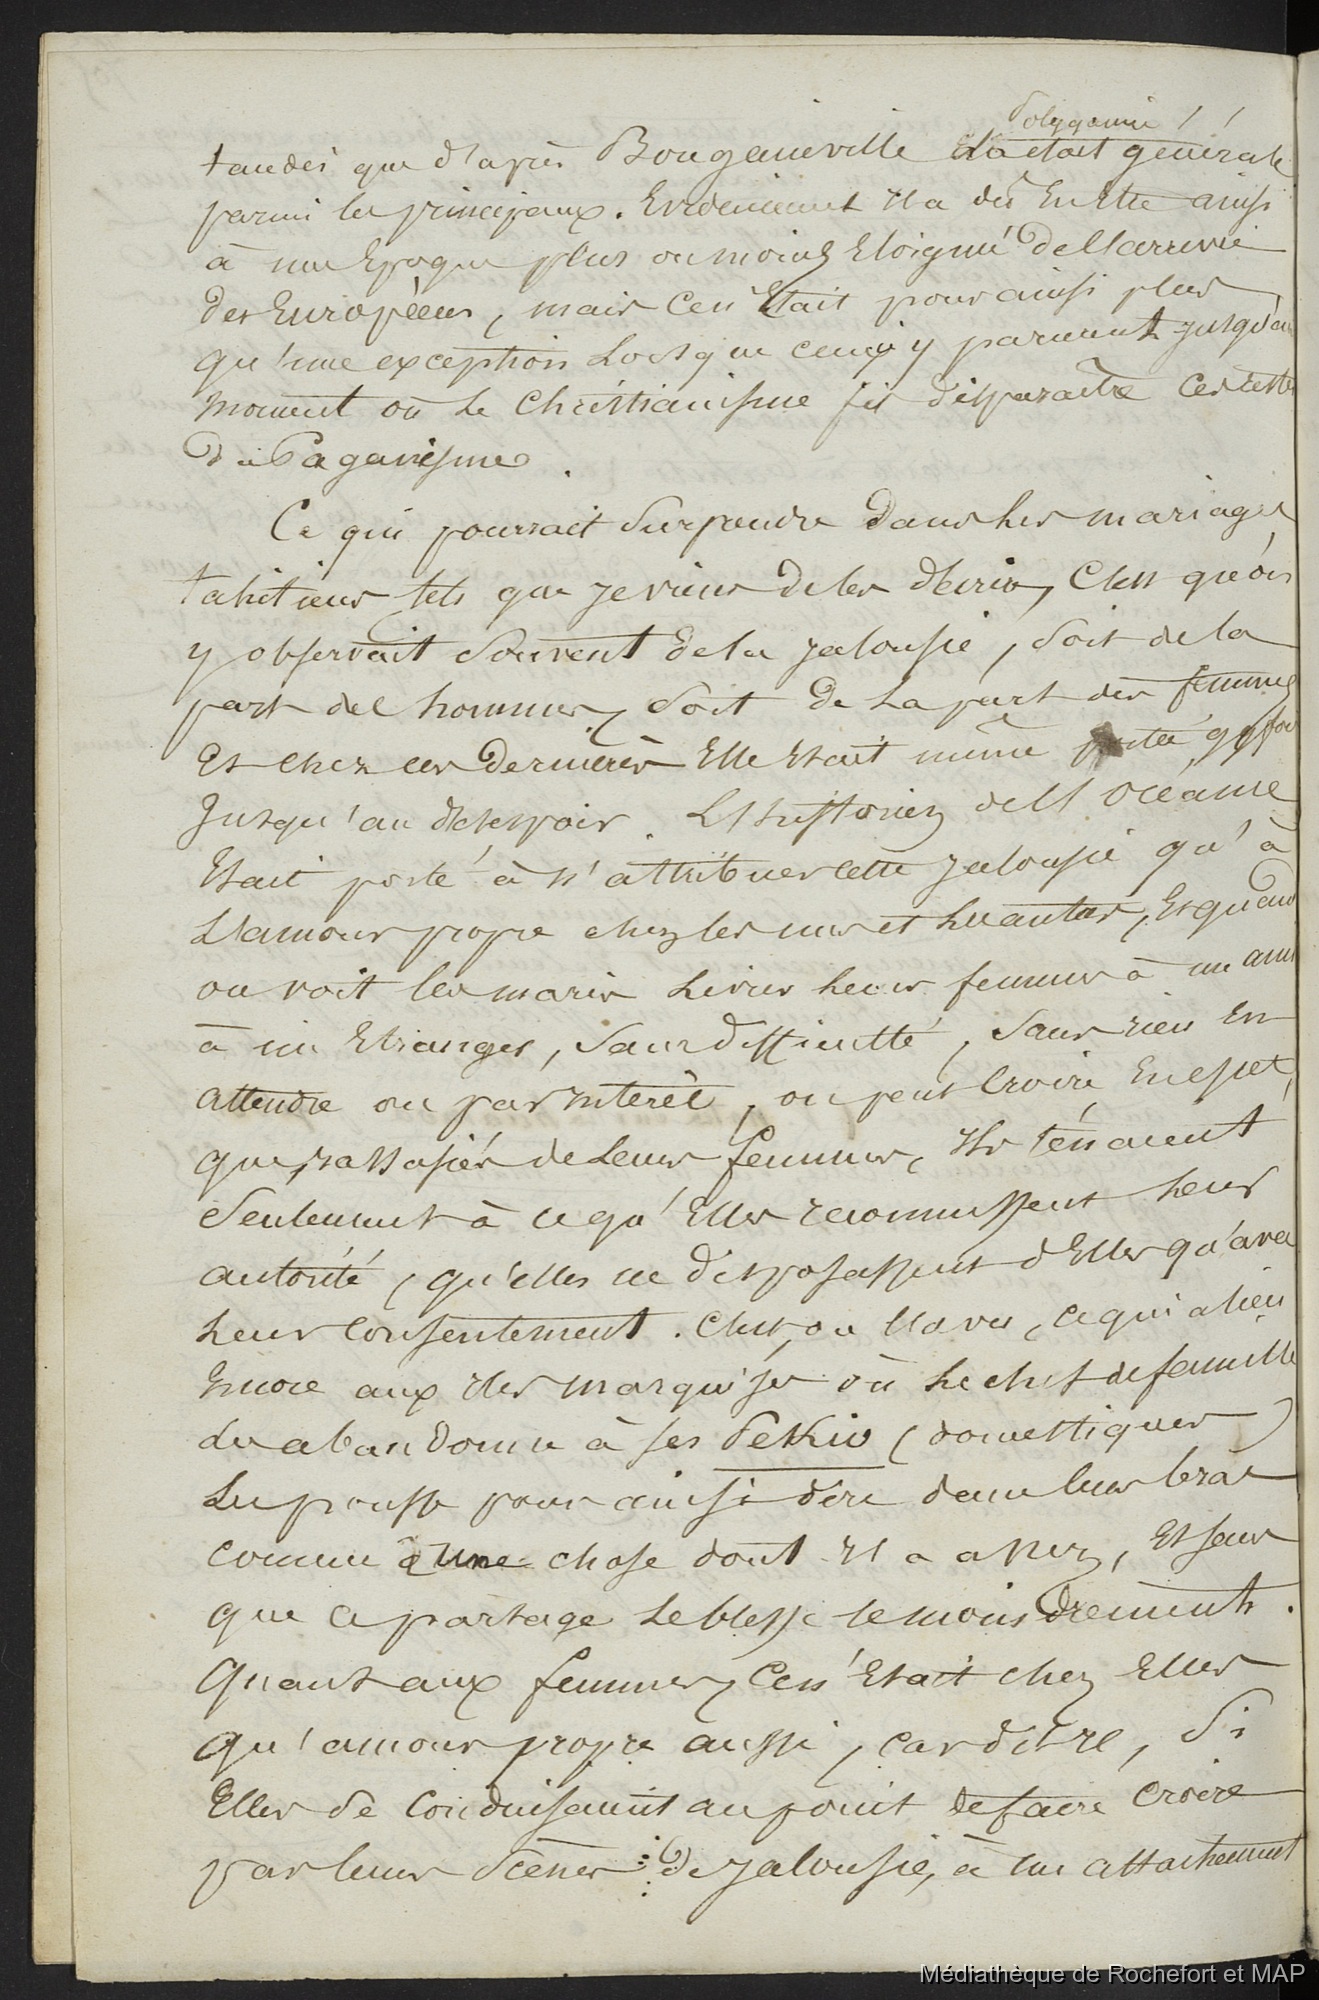 Polygamie
tandis que d'après Bougainville la était générale
parmi les principaux. Evidemment Il a dû En Etre ainsi
à une Epoque plus ou moins Eloigné de l'arrivée
des Européens, mais Ce n'Etait pour ainsi plus
qu'une exception Lorsque ceux y parurent jusqu'au
moment où Le Christianisme fit disparaître Ces restes
du Paganisme.
Ce qui pourrait Surprendre dans Les mariages
tahitiens tels que je viens de les décrire, C'est qu'on
y observait Souvent de la jalousie, Soit de la
part des hommes, Soit de La part des femmes
Et chez ces dernières Elle Etait même portée qqfois
Jusqu'au désespoir. L'historien de l'Océanie
Etait porté à n'attribuer cette jalousie qu'à
L'amour propre chez les uns et Les autres, Et quand
on voit les maris Livrer Leurs femmes à un ami
à un Etranger, Sans difficulté, Sans rien En
attendre ou par Interêt, on peut Croire, En effet,
que, rassasiés de Leurs femmes, Ils tenaient
Seulement à ce qu'Elles reconnussent Leur
autorité, qu'elles ne disposassent d'Elles qu'avec
Leur consentement. C'est, on l'a vu, ce qui a lieu
Encore aux Iles Marquises où Le chef de famille
Les abandonne à ses Pekio (domestiques)
Les pousse pour ainsi dire dans leurs bras
comme une chose dont Il a assez, Et sans
que ce partage Le blesse le moindrement.
Quant aux femmes, Ce n'Etait chez Elles
qu'amour propre aussi, car dit-il, Si
Elles Se Conduisaient au point de faire Croire
par leurs Scènes de jalousie, à un attachement
Médiathèque de Rochefort et MAP